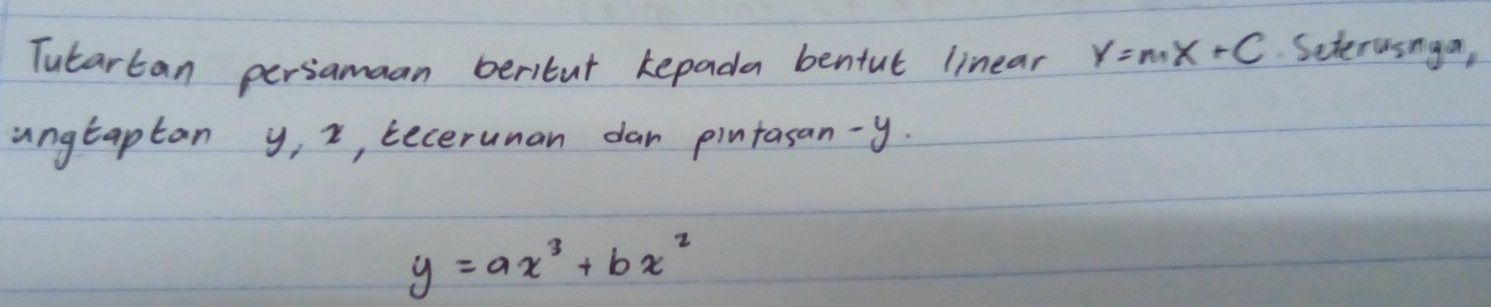 Tukarkan persamaan berikut kepada bentuk linear Y=mX+C. Seterusnya,
ungkapkan y, x, kecerunan dan pintasan-y.
y = ax³ + bx²